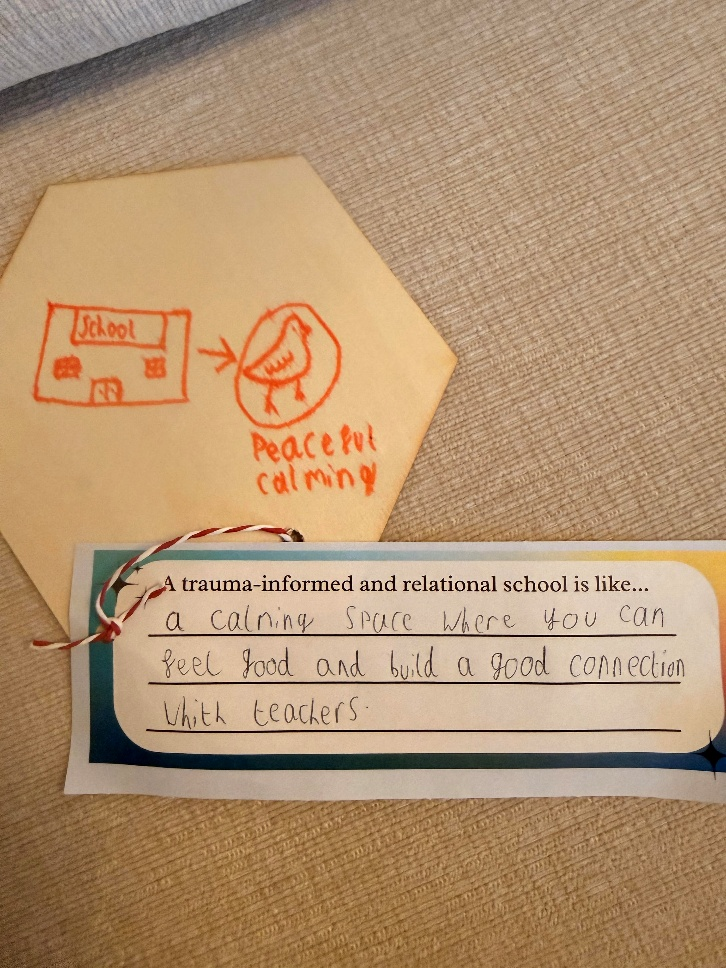 School
Peaceful
calming
A trauma-informed and relational school is like...
a calming space where you can
feel good and build a good connection
whith teachers.